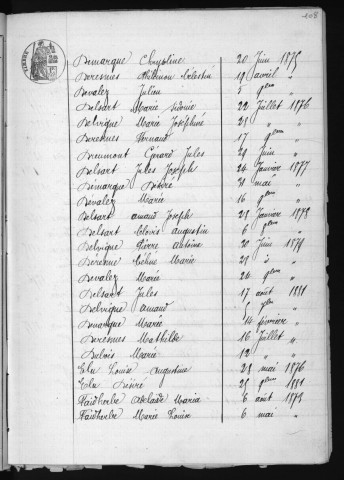 108
Demarque Chrysoline 20 Juin 1875
Deresnes Philémon Célestin 18 avril "
Devalez Julien 5 9bre "
Delsart Marie Sidonie 22 Juillet 1876
Delvigne Marie Joséphine 23 " "
Deresnes Fernand 17 9bre "
Dreumont Gérard Jules 29 Juin "
Delsart Jules Joseph 24 Janvier 1877
Demarque Désiré 31 mai "
Devalez Marie 16 9bre "
Delsart amand Joseph 23 Janvier 1878
Delsart Clovis augustin 6 9bre "
Delvigne Pierre antoine 20 Juin 1879
Deresne Céline Marie 23 "
Devalez Marie 24 9bre "
Delsart Jules 17 août 1881
Delvigne amand "
Demarque Marie 14 février "
Deresnes Mathilde 16 Juillet "
Delvis Marie 12 " "
Elie Louise Augustine 23 mai 1876
Elie Désiré 25 9bre 1881
Faidherbe Adelaïde Maria 6 août 1873
Faidherbe Marie Louise 6 mai "